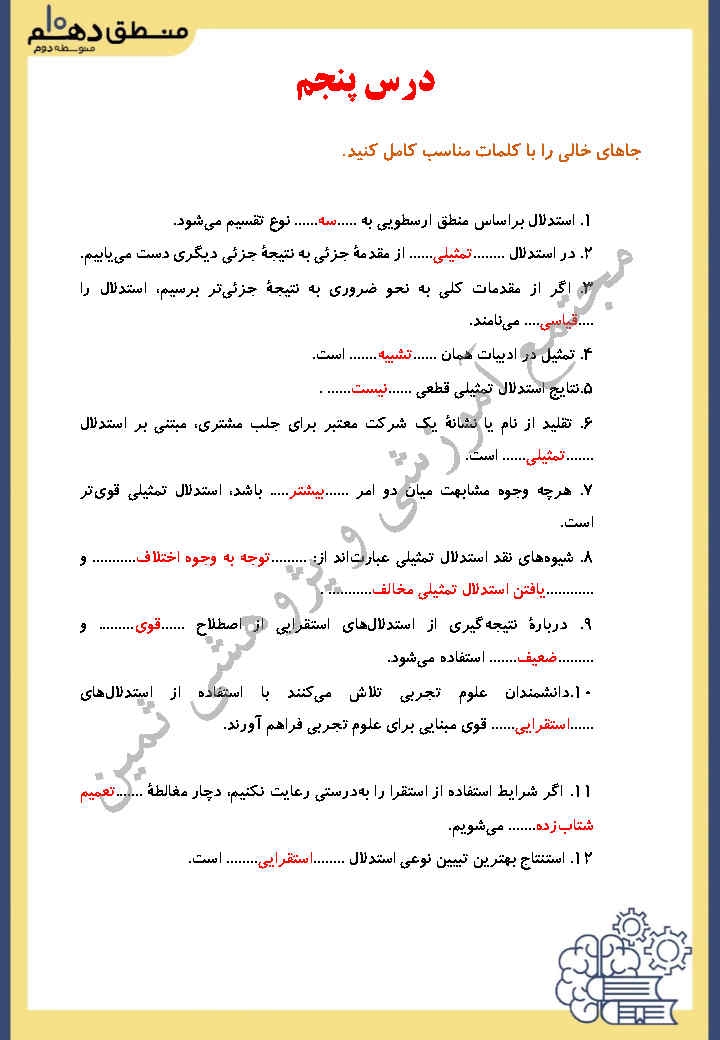 منطق دهم ۱۰
متوسطه دوم
درس پنجم
جاهای خالی را با کلمات مناسب کامل کنید.
۱. استدلال براساس منطق ارسطویی به .....سه...... نوع تقسیم می‌شود.
۲. در استدلال ........تمثیلی...... از مقدمهٔ جزئی به نتیجهٔ جزئی دیگری دست می‌یابیم.
۳. اگر از مقدمات کلی به نحو ضروری به نتیجهٔ جزئی‌تر برسیم، استدلال را
....قیاسی.... می‌نامند.
۴. تمثیل در ادبیات همان ......تشبیه....... است.
۵.نتایج استدلال تمثیلی قطعی ......نیست...... .
۶. تقلید از نام یا نشانهٔ یک شرکت معتبر برای جلب مشتری، مبتنی بر استدلال
.......تمثیلی...... است.
۷. هرچه وجوه مشابهت میان دو امر ......بیشتر..... باشد، استدلال تمثیلی قوی‌تر
است.
۸. شیوه‌های نقد استدلال تمثیلی عبارت‌اند از: .........توجه به وجوه اختلاف........... و
............یافتن استدلال تمثیلی مخالف........... .
۹. دربارهٔ نتیجه‌گیری از استدلال‌های استقرایی از اصطلاح ......قوی......... و
.........ضعیف....... استفاده می‌شود.
۱۰.دانشمندان علوم تجربی تلاش می‌کنند با استفاده از استدلال‌های
......استقرایی...... قوی مبنایی برای علوم تجربی فراهم آورند.
۱۱. اگر شرایط استفاده از استقرا را به‌درستی رعایت نکنیم، دچار مغالطهٔ .......تعمیم
شتاب‌زده....... می‌شویم.
۱۲. استنتاج بهترین تبیین نوعی استدلال ........استقرایی........ است.
مجتمع آموزشی و پژوهشی ثمین